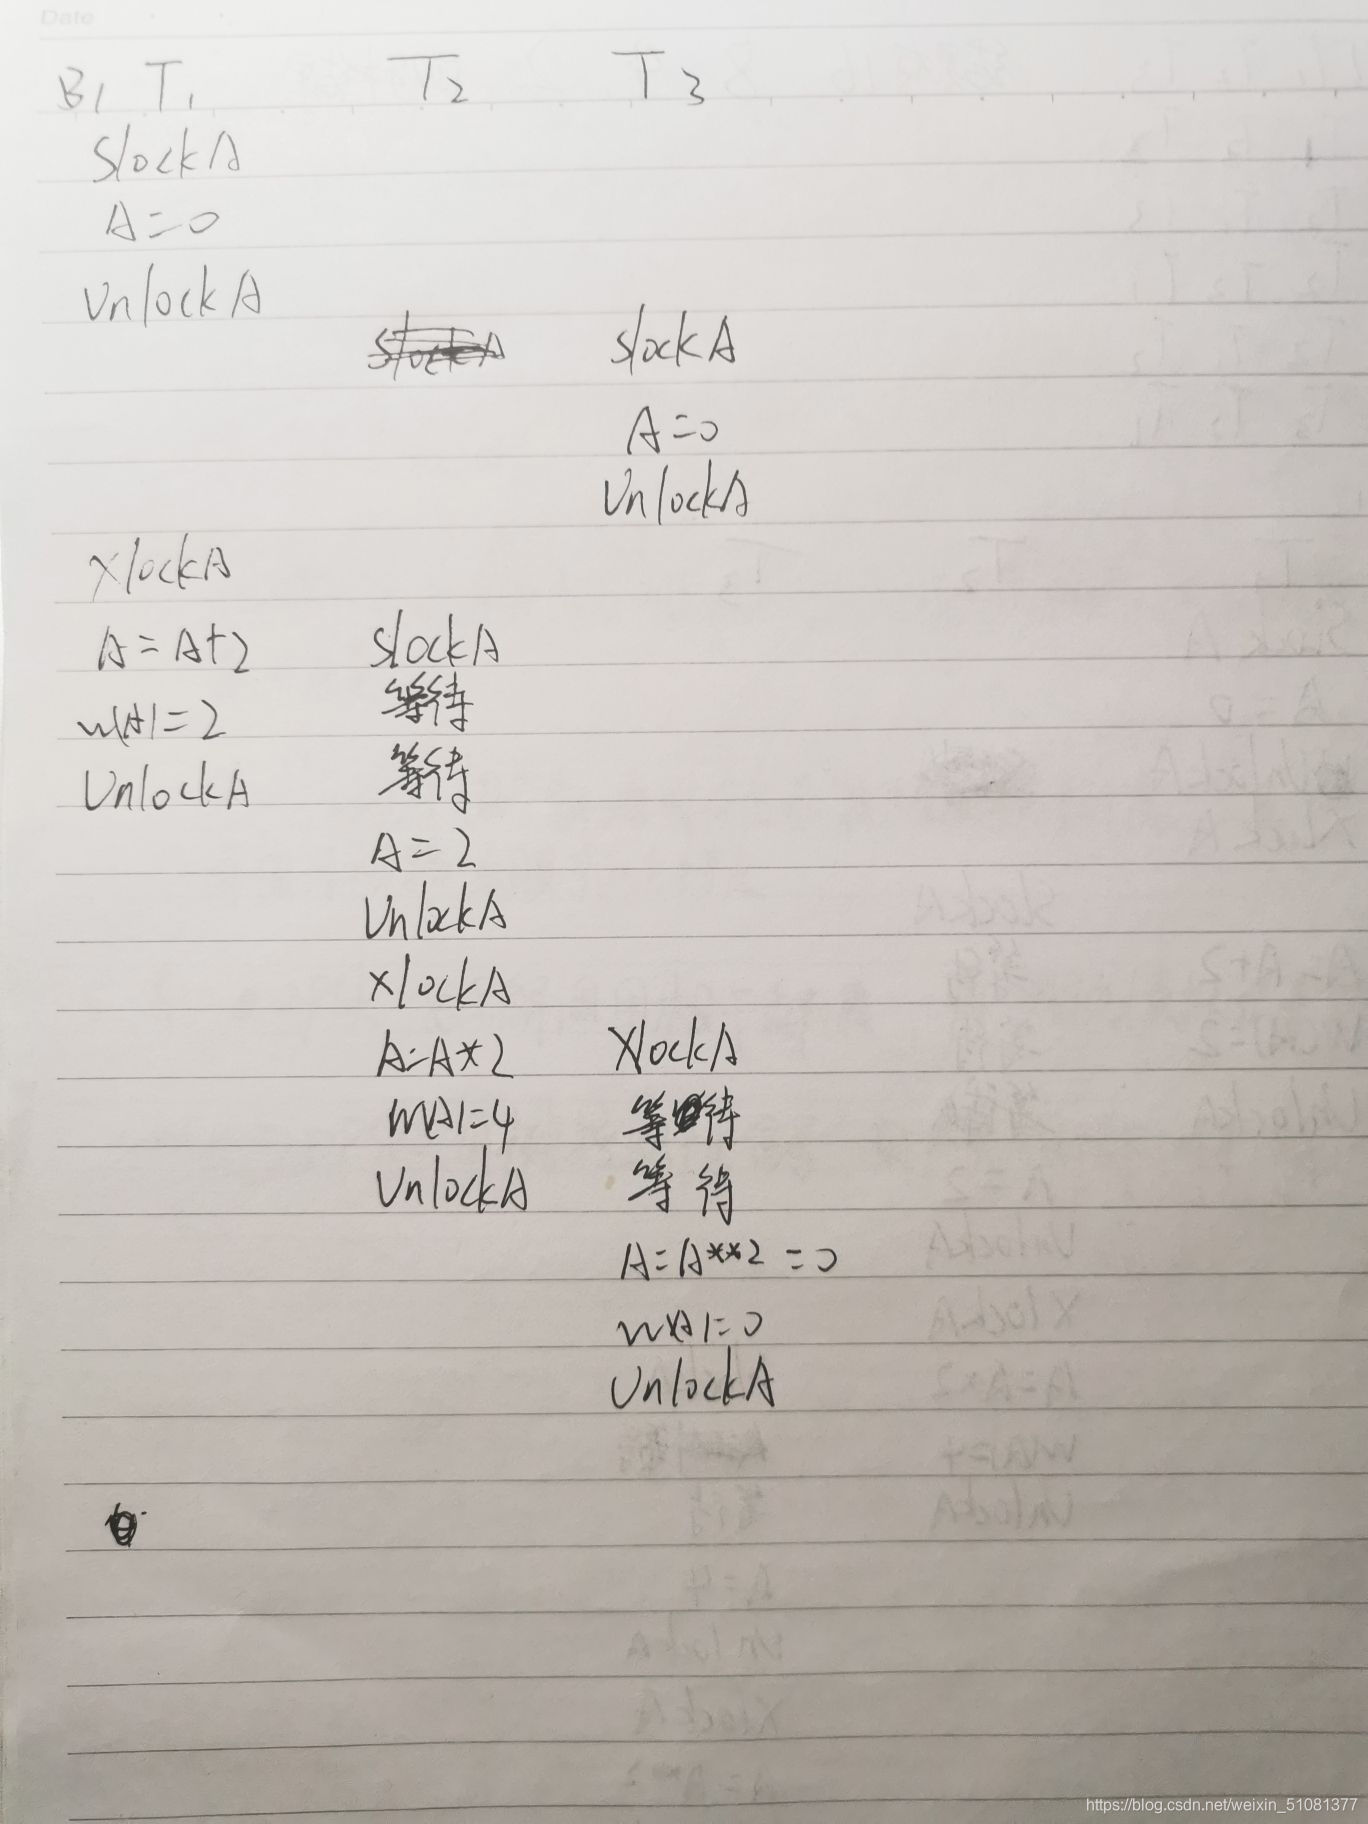 Date
B1 T1 T2 T3
Slock A
A=0
Unlock A
SlockA Slock A
A=0
UnlockA
XlockA
A=A+2 SlockA
W(A)=2 等待
UnlockA 等待
A=2
UnlockA
XlockA
A=A*2 XlockA
W(A)=4 等待
UnlockA 等待
A=A**2=0
W(A)=0
UnlockA
https://blog.csdn.net/weixin_51081377